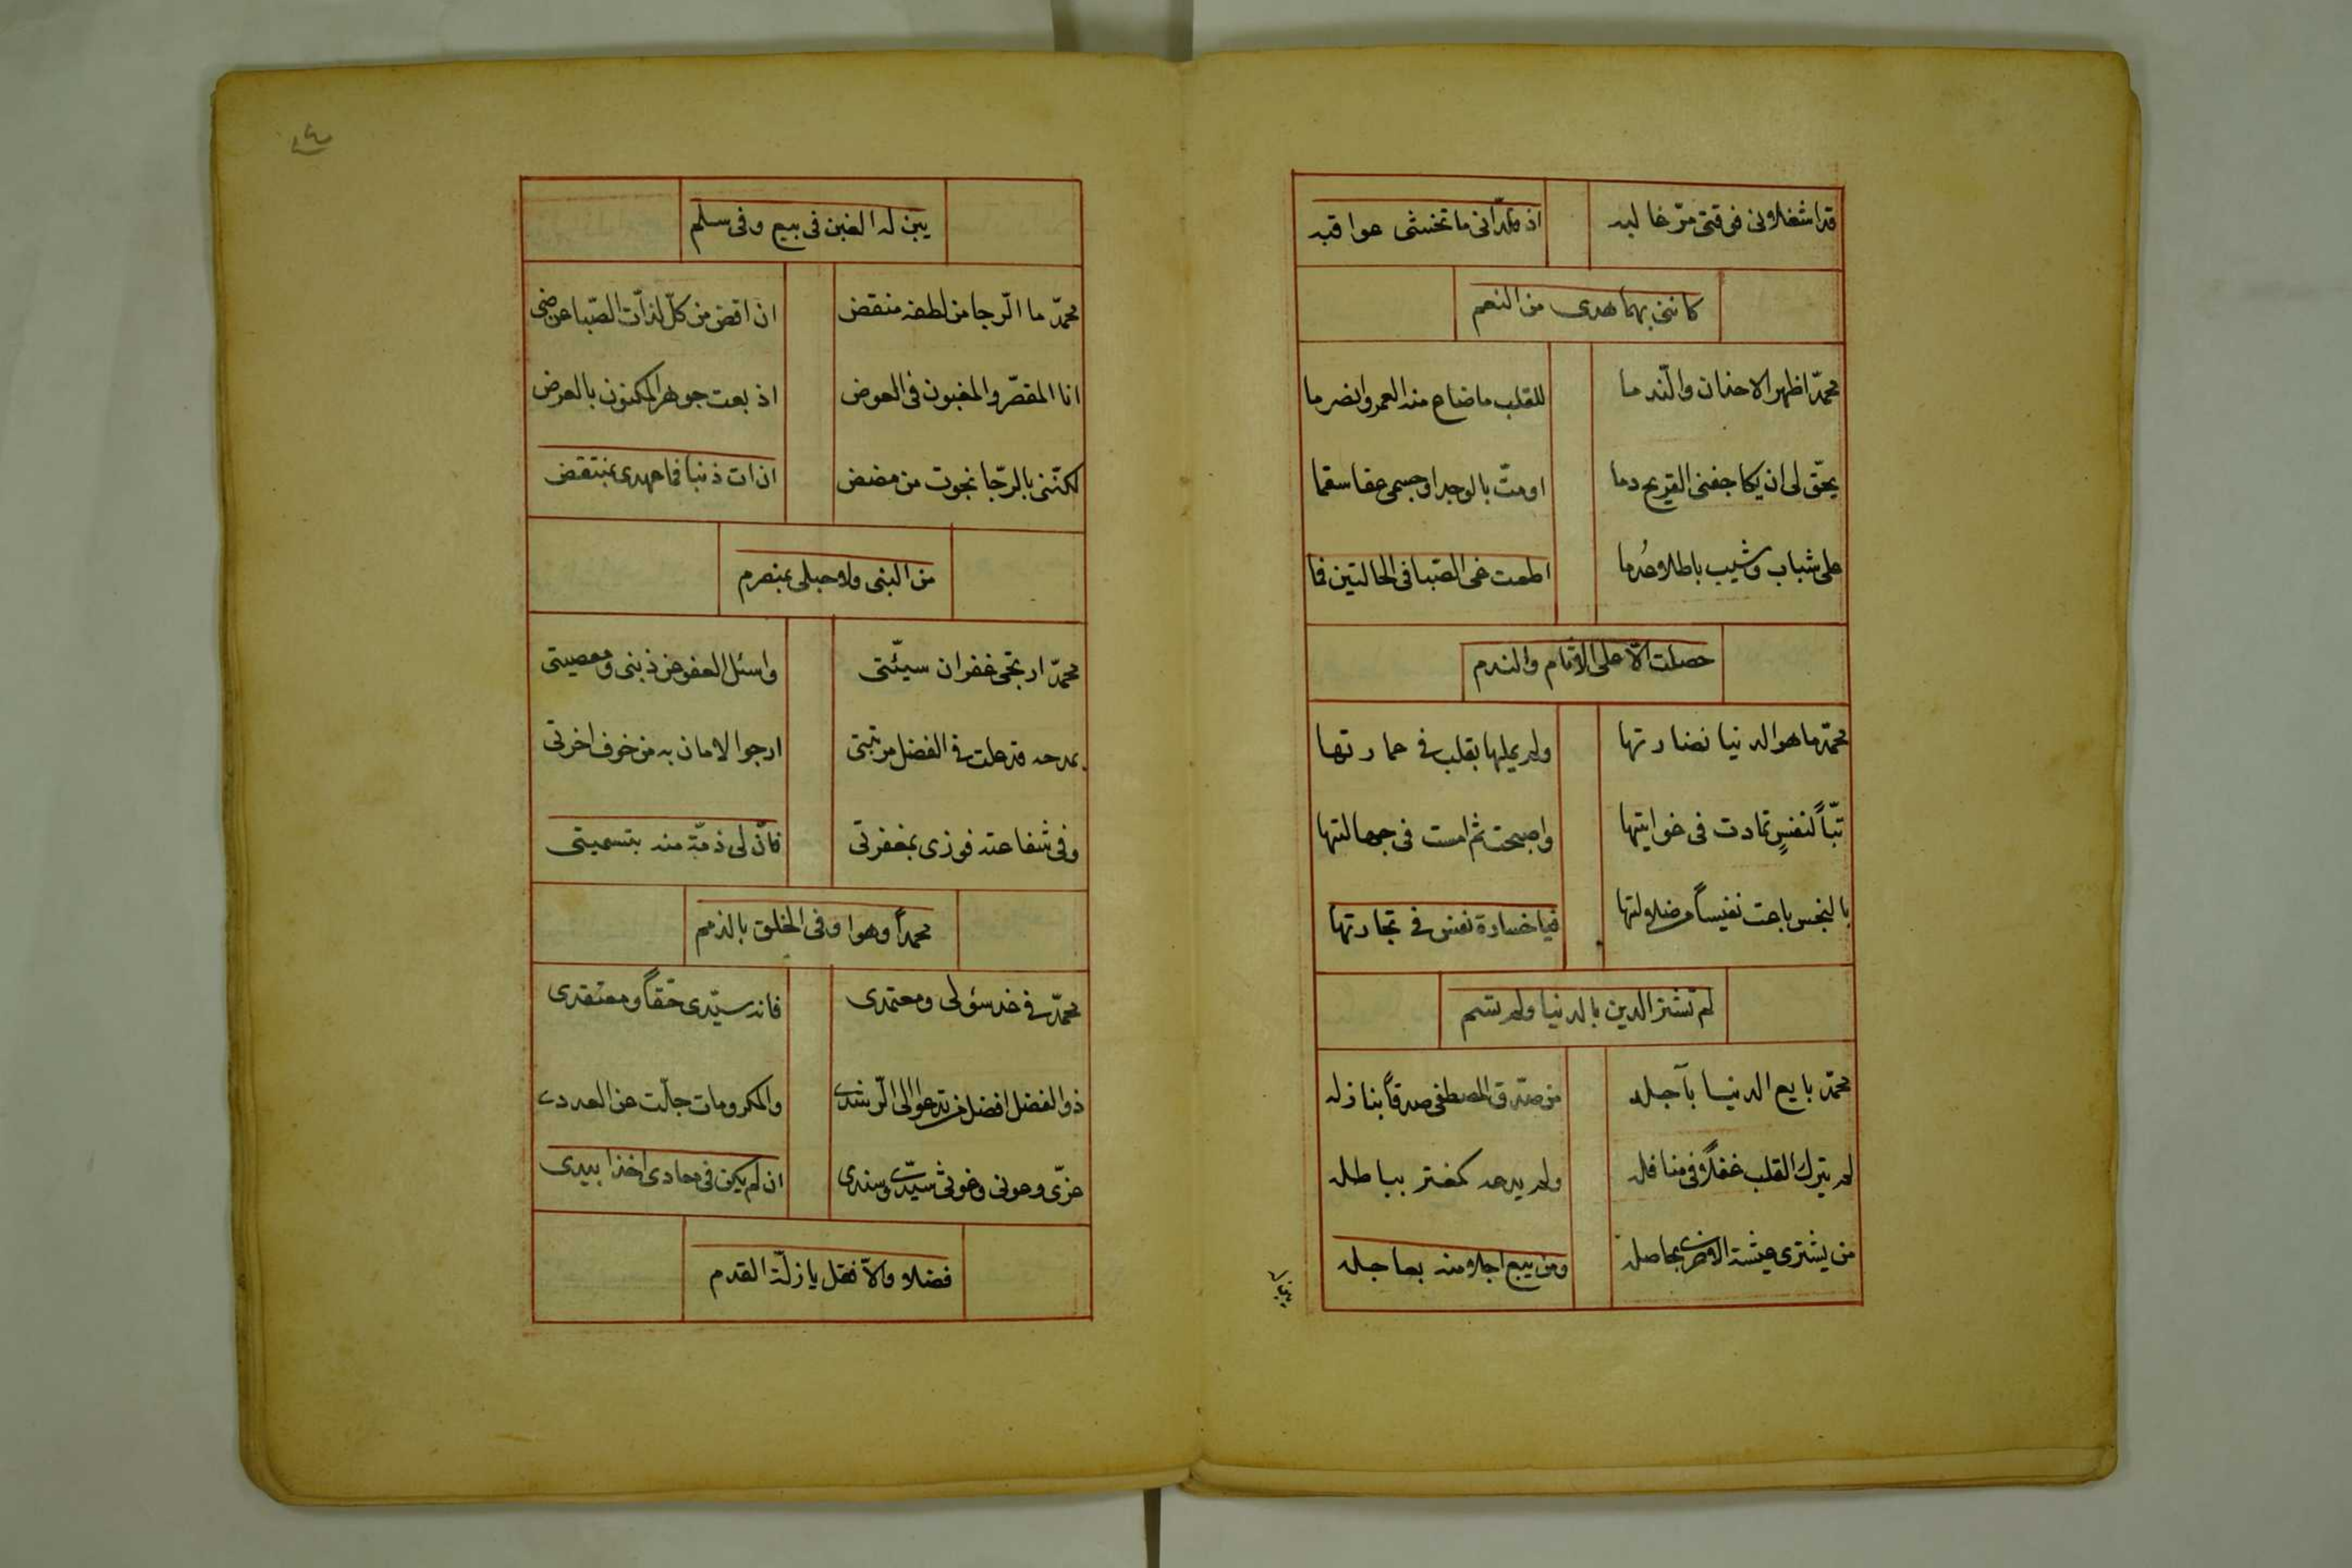 قد اشغلاونى فى فتى مرّ غاليه اذ قلدانى ما تخشى عواقبه
كاننى بهما هدى من النعم
محمّد اظهر الاحنان والنّدما للقلب ما ضاع منه العمر وانصرما
يحقّ لى ان بكا جفنى القريح دما او متّ بالوجد او جسمى عفا سقما
على شباب وشيب باطلا وعُدما اطعت غى الصّبا فى الحالتين فما
حصلت الّا على الاثام والندم
محمّد ما هو الدنيا نضارتها ولم يملها بقلب فى عمارتها
تبّاً لنفسٍ تمادت فى غوايتها واصبحت ثم امست فى جهالتها
بالبخس باعت نفيساً من ضلاولتها فيا خسارة نفس فى تجارتها
لم تشتر الدين بالدنيا ولم تسم
محمّد بايع الدنيا بآجله من صدّق المصطفى صدقاً بنازله
لم يترك القلب غفلاً فى منافله ولم يدعه كمغتر بباطله
من يشترى عيشة الاخرى بحاصله ومن يبع اجلا منه بعاجله
يبن له
١٤
يبن له الغبن فى بيع وفى سلم
محمّد ما الّرجا من لطفه منقض ان اقض من كلّ لذّات الصّبا غرضى
انا المقصّر والمغبون فى العوض اذ بعت جوهر المكنون بالعرض
لكنّنى بالرّجا نجوت من مضض ان ات ذنبا فما عهدى بمنتقض
من النبى ولا حبلى بمنصرم
محمّد ارتجى غفران سيّئتى واسئل العفو عن ذنبى ومعصيتى
بمدحه قد علت فى الفضل مرتبتى ارجوا الامان به من خوف اخرتى
وفى شفاعته فوزى بمغفرتى فانّ لى ذمّة منه بتسميتى
محمداً وهو اوفى الخلق بالذمم
محمّد فى غد سئولى ومعتمدى فانه سيّدى حقّاً ومعتقدى
ذو الفضل افضل من يدعوا الى الّرشد والمكرومات جلّت عن العدد
عزّى وعونى وغوثى سيّدى وسندى ان لم يكن فى معادى اخذا بيدى
فضلا والّا فقل يا زلّة القدم